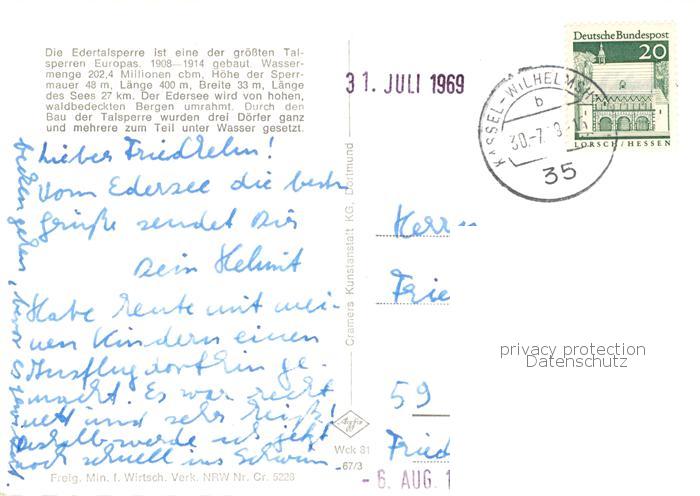 Die Edertalsperre ist eine der größten Tal-
sperren Europas. 1908—1914 gebaut. Wasser-
menge 202,4 Millionen cbm, Höhe der Sperr-
mauer 48 m, Länge 400 m, Breite 33 m, Länge
des Sees 27 km. Der Edersee wird von hohen,
waldbedeckten Bergen umrahmt. Durch den
Bau der Talsperre wurden drei Dörfer ganz
und mehrere zum Teil unter Wasser gesetzt.
Lieber Friedhelm!
Vom Edersee die besten
Grüße sendet Dir
Dein Helmut
Habe heute mit mei-
nen Kindern einen
Ausflug dorthin ge-
macht. Es war recht
nett und sehr heiß!
Deshalb werde ich jetzt
noch schnell ins Schwim-
becken gehen, bevor es
Freig. Min. f. Wirtsch. Verk. NRW Nr. Cr. 5228
Cramers Kunstanstalt KG, Dortmund
Agfa
Wck 81
-67/3
31. JULI 1969
KASSEL-WILHELMSH
b
30.-7.
35
Deutsche Bundespost
20
LORSCH/HESSEN
Herr
Frie
59
Fried
- 6. AUG. 1
privacy protection
Datenschutz